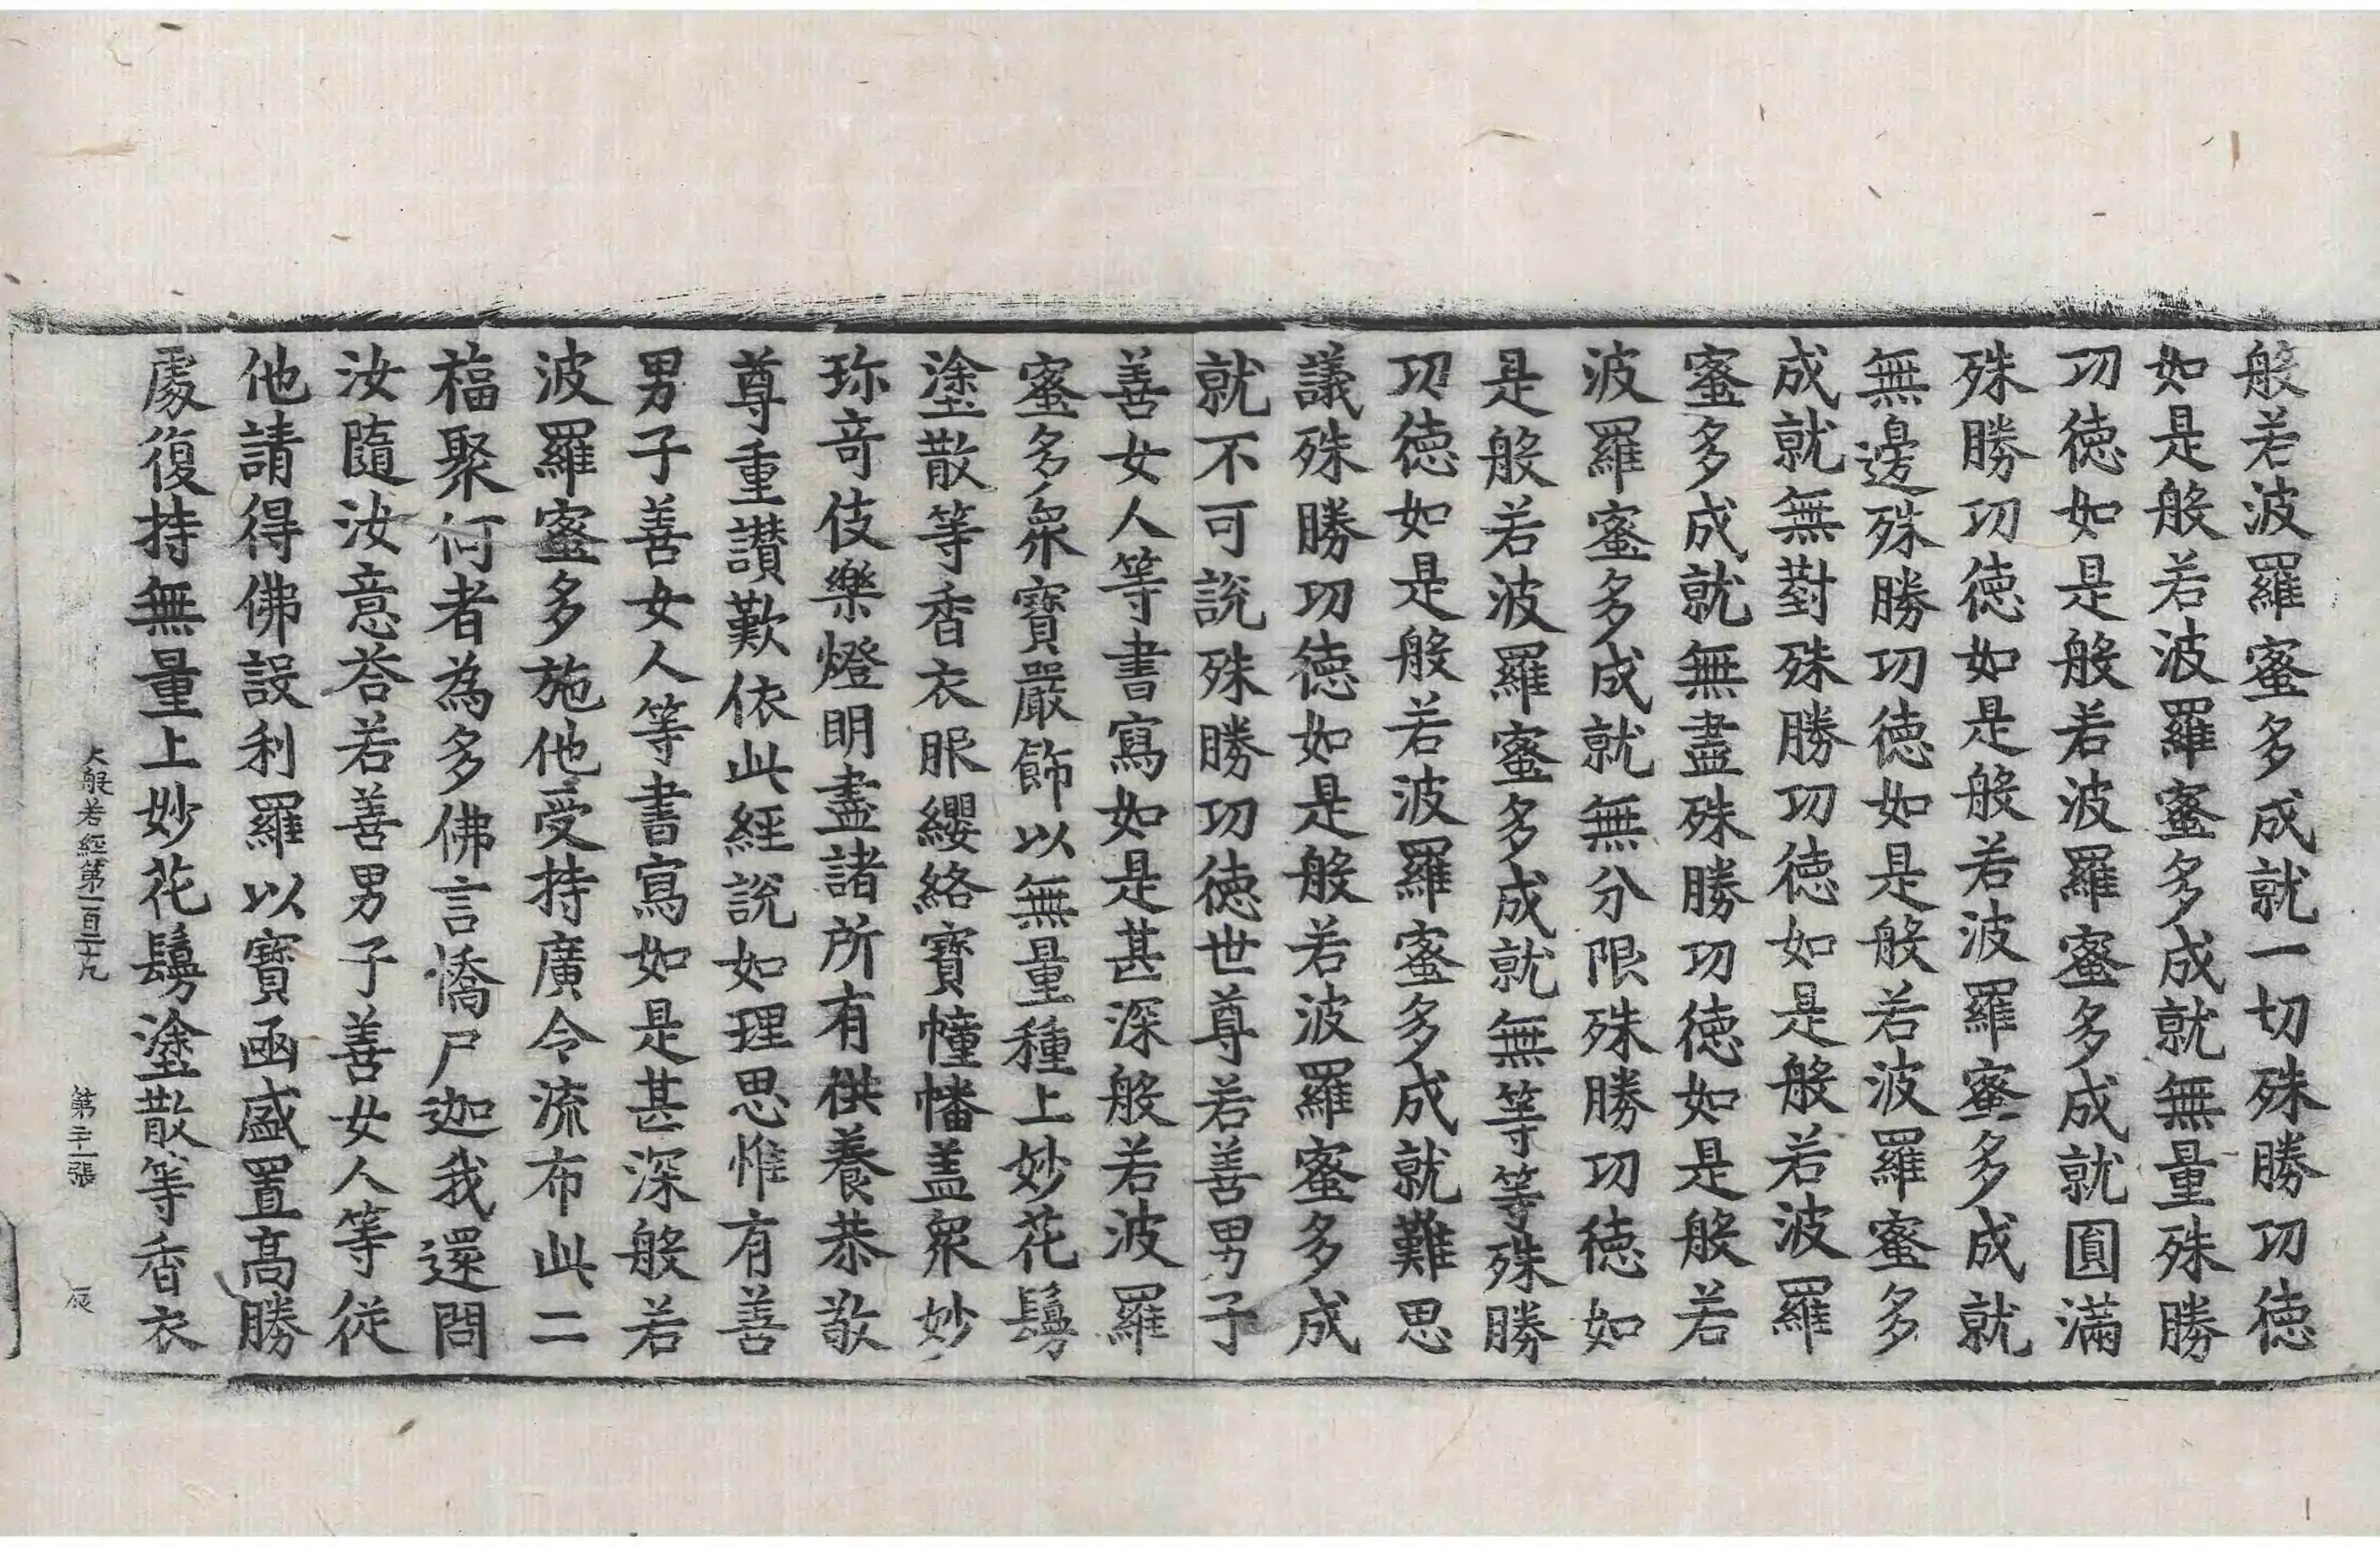 般若波羅蜜多成就一切殊勝功徳
如是般若波羅蜜多成就無量殊勝
功徳如是般若波羅蜜多成就圓滿
殊勝功徳如是般若波羅蜜多成就
無邊殊勝功徳如是般若波羅蜜多
成就無對殊勝功徳如是般若波羅
蜜多成就無盡殊勝功徳如是般若
波羅蜜多成就無分限殊勝功徳如
是般若波羅蜜多成就無等等殊勝
功徳如是般若波羅蜜多成就難思
議殊勝功徳如是般若波羅蜜多成
就不可說殊勝功徳世尊若善男子
善女人等書寫如是甚深般若波羅
蜜多衆寶嚴飾以無量種上妙花鬘
塗散等香衣服纓絡寶幢幡盖衆妙
珎竒伎樂燈明盡諸所有供養恭敬
尊重讃歎依此經說如理思惟有善
男子善女人等書寫如是甚深般若
波羅蜜多施他受持廣令流布此二
福聚何者為多佛言憍尸迦我還問
汝隨汝意荅若善男子善女人等從
他請得佛設利羅以寶函盛置髙勝
處復持無量上妙花鬘塗散等香衣
大般若經第一百二十九 第二十一張 辰